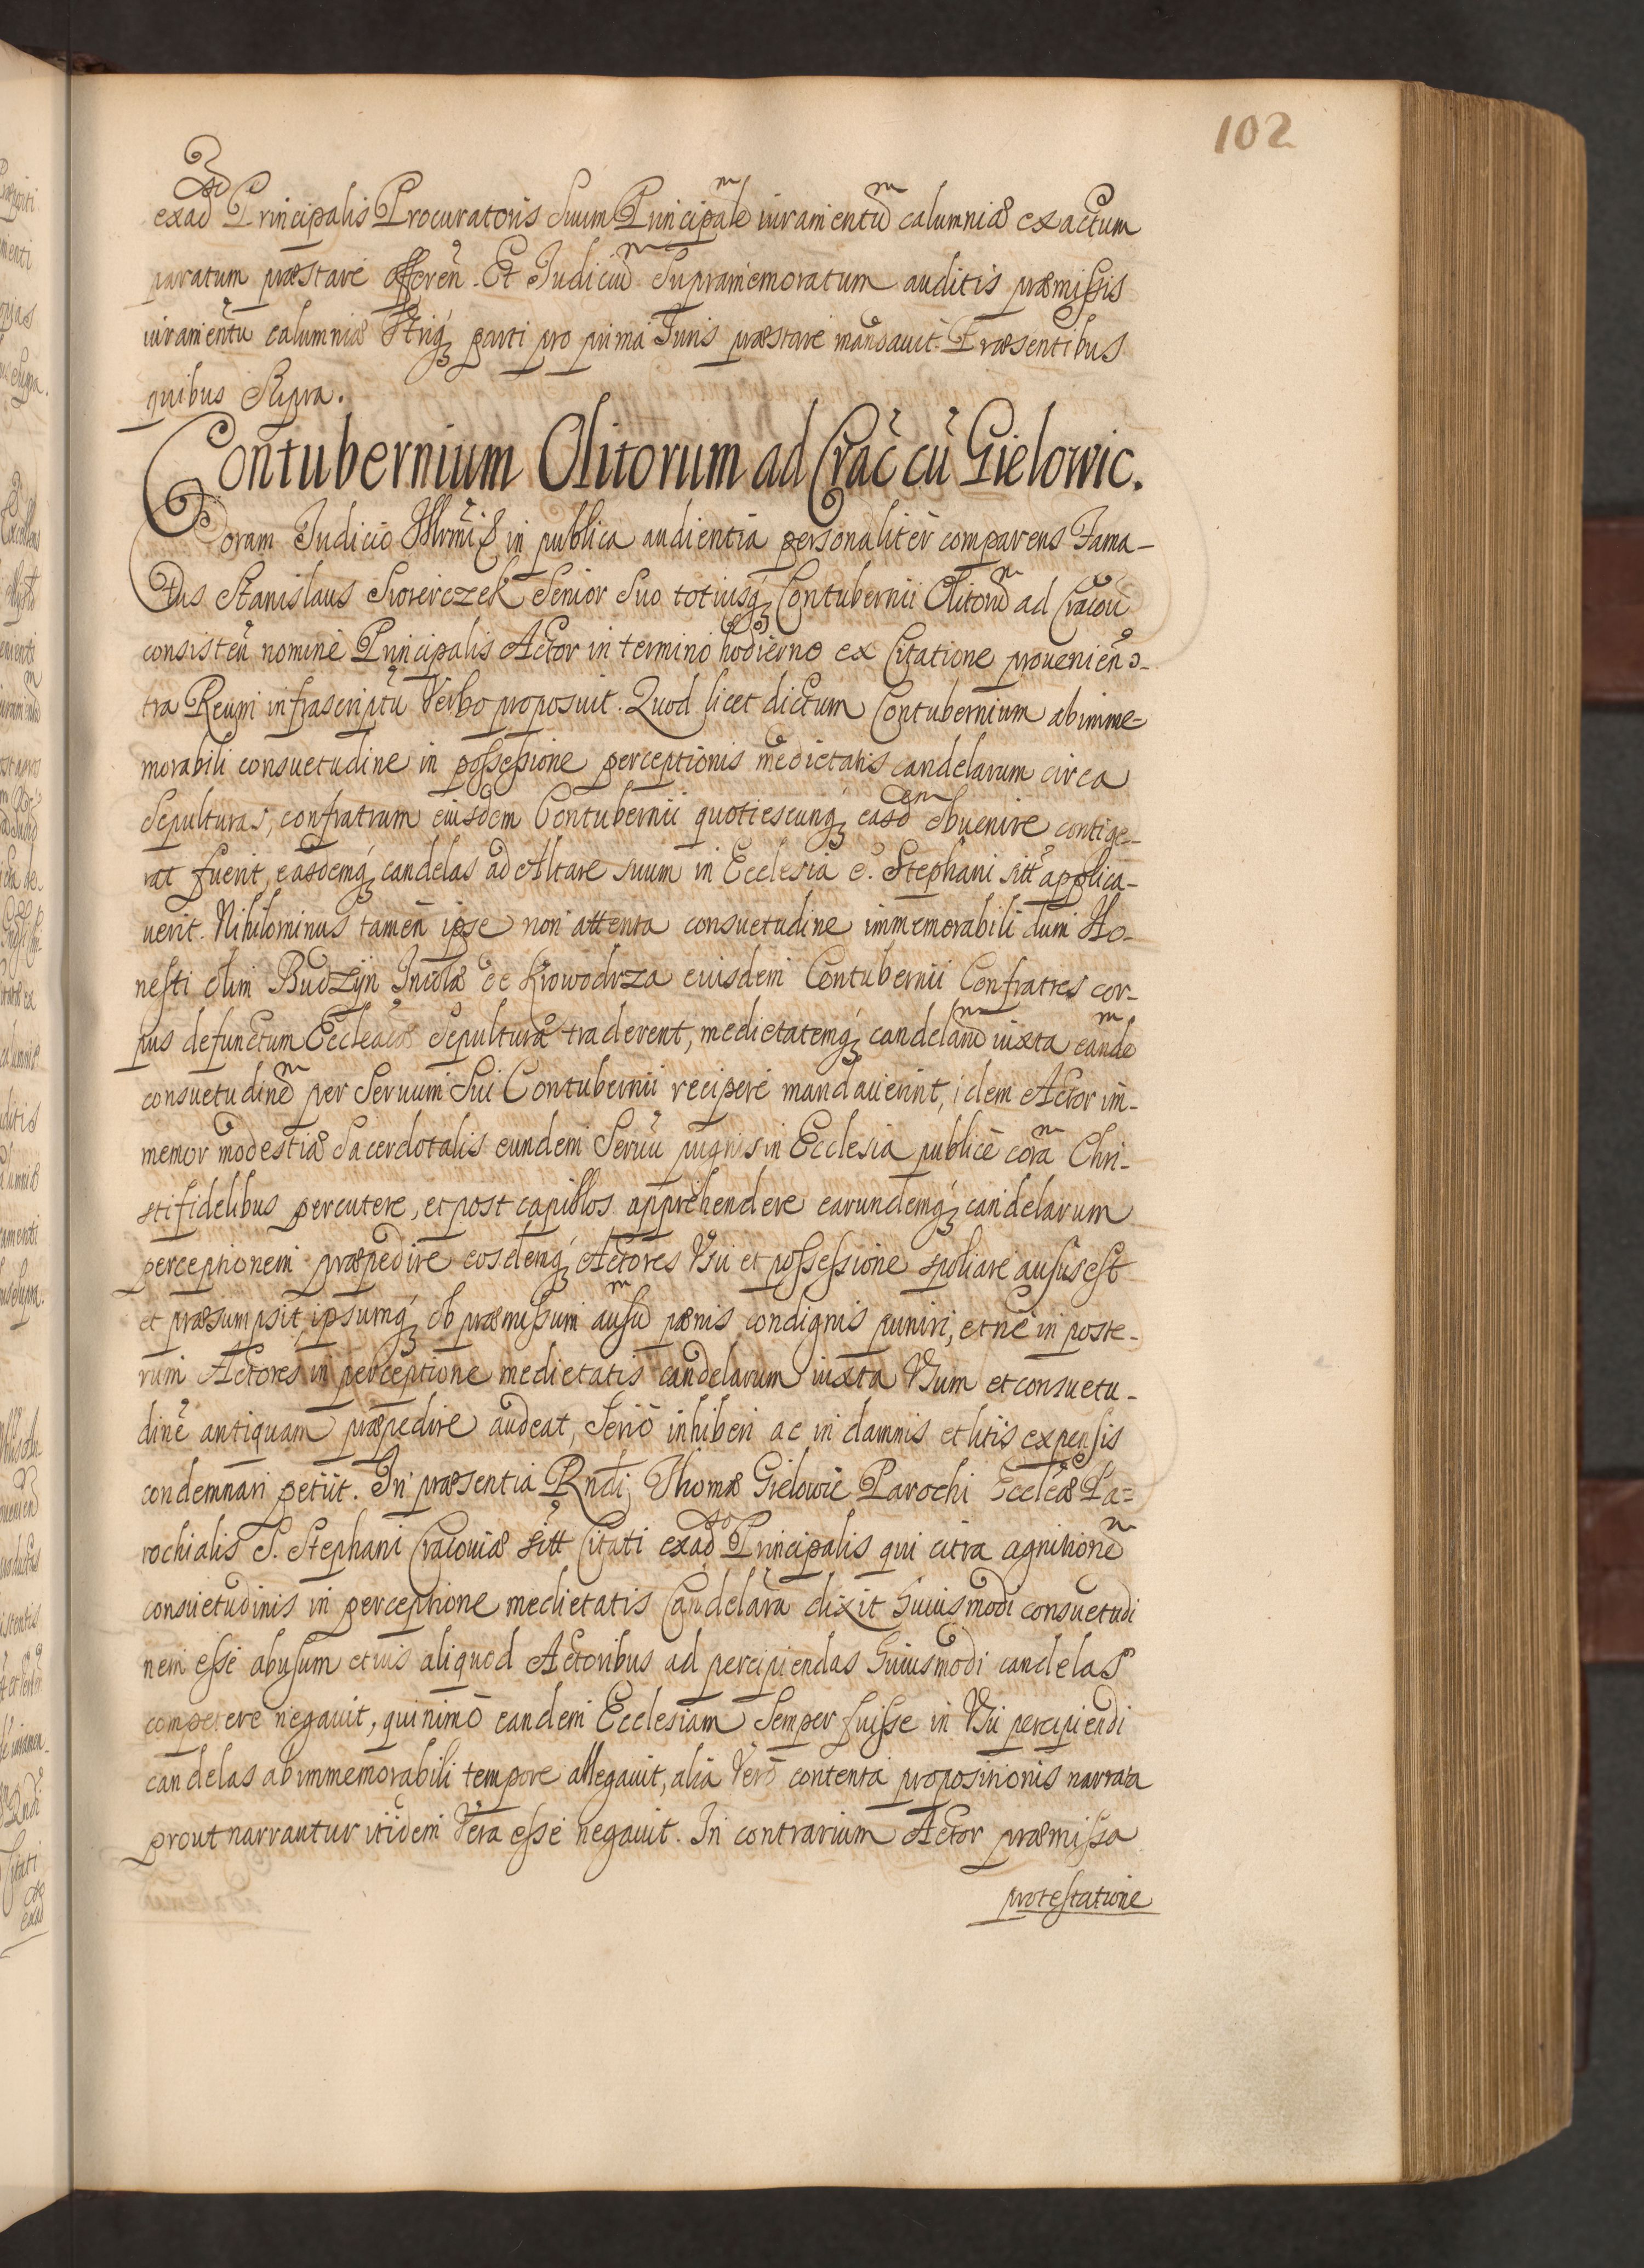 102
exad Principalis Procuratoris suum Principale iuramentu calumniæ exactum
paratum præstare offeren. Et Iudiciu supramemoratum auditis præmissis
iuramentu calumniæ Vtriq; parti pro prima Iuris præstare mandauit. Præsentibus
quibus supra.
Contubernium Olitorum ad Crac cu Gielowic.
Coram Iudicio in publica audientia personaliter comparens Fama-
tus Stanislaus Swierczek Senior suo totiusq; Contubernii Olitoru ad Cracou
consisten nomine Principalis Actor in termino hodierno ex Citatione prouenien co-
tra Reum infrascriptu Verbo proposuit. Quod licet dictum Contubernium ab imme-
morabili consuetudine in possessione perceptionis medietatis candelarum circa
Sepulturas, confratrum eiusdem Contubernii quotiescunq; easd obuenire contige-
rat fuerit, easdemq; candelas ad Altare suum in Ecclesia S. Stephani sitt applica-
uerit. Nihilominus tamen ipse non attenta consuetudine immemorabili dum Ho-
nesti olim Budzyn Incolæ de Krowodrza eiusdem Contubernii Confratres cor-
pus defunctum Eccleacæ Sepulturæ traderent, medietatemq; candelaru iuxta eande
consuetudine per Seruum sui Contubernii recipere mandauerint, idem Actor im-
memor modestiæ Sacerdotalis eundem Seruu pugnis in Ecclesia publice cora Chri-
stifidelibus percutere, et post capillos apprehendere earundemq; candelarum
perceptionem præpedire eosdemq; Actores Vsu et possessione spoliare ausus est
et præsumpsit, ipsumq; ob præmissum ausu pœnis condignis puniri, et ne in poste-
rum Actores in perceptione medietatis candelarum iuxta Vsum et consuetu-
dine antiquam præpedire audeat, serio inhiberi ac in damnis et litis expensis
condemnari petiit. In præsentia Rndi Thomæ Gielowic Parochi Eccleæ Pa=
rochialis S. Stephani Cracouiæ sitt Citati exad Principalis qui citra agnitione
consuetudinis in perceptione medietatis Candelaru dixit huiusmodi consuetudi
nem esse abusum et ius aliquod Actoribus ad percipiendas huiusmodi candelas
competere negauit, quinimo eandem Ecclesiam semper fuisse in Vsu percipiendi
candelas ab immemorabili tempore allegauit, alia Vero contenta propositionis narrata
prout narrantur itidem Vera esse negauit. In contrarium Actor præmissa
protestatione